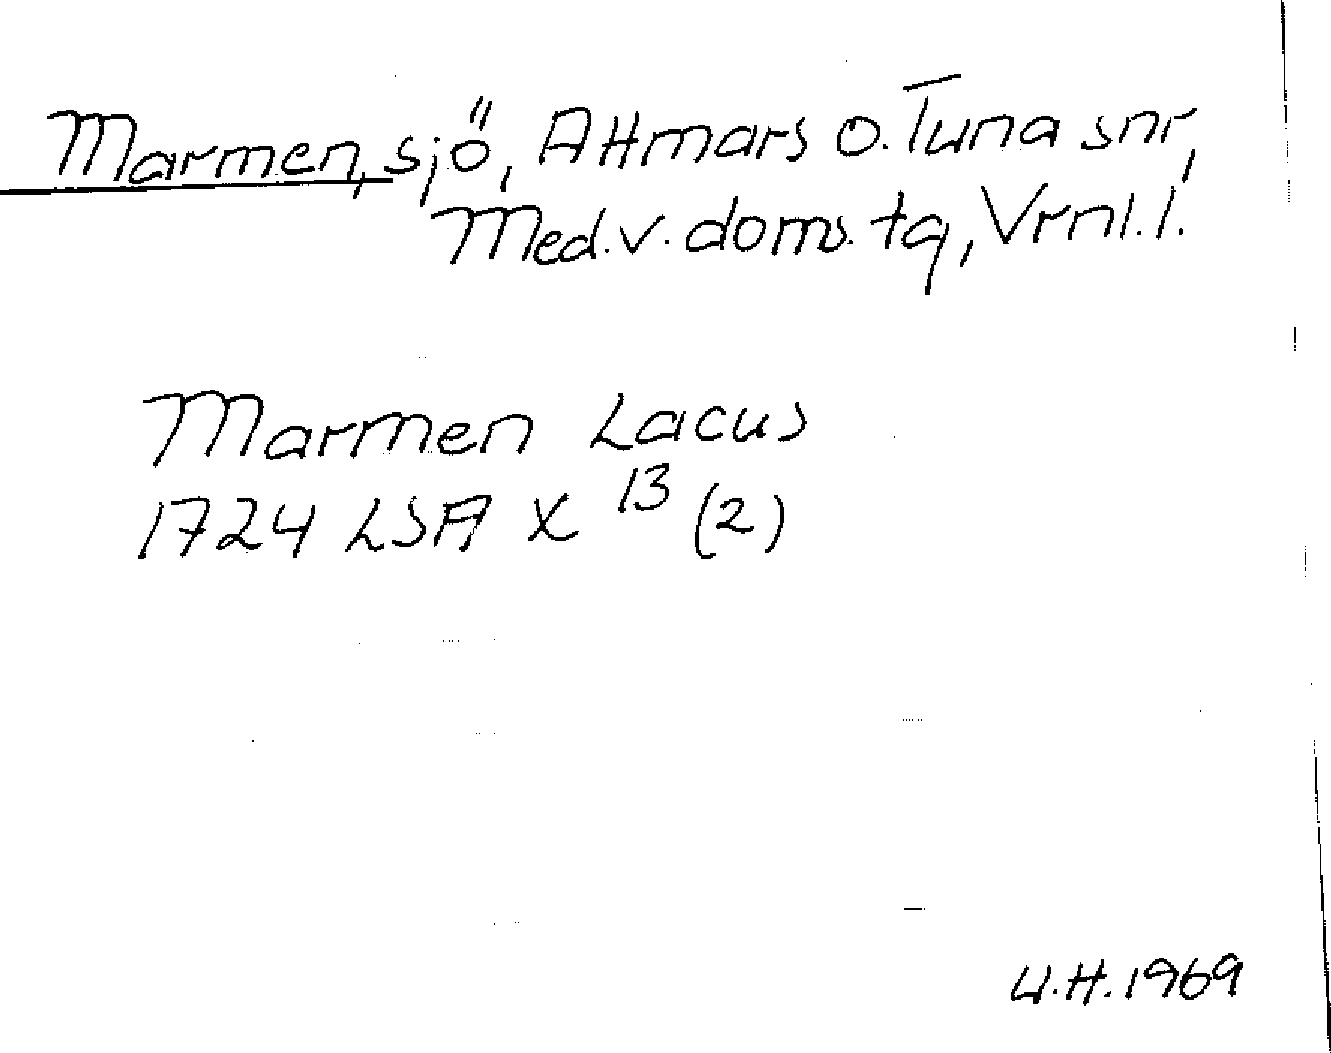 Marmen, sjö, Attmars o. Tuna snr,
Med.v. doms. tg, Vrnl. l.
Marmen Lacus
1724 LSA X 13 (2)
U.H. 1969